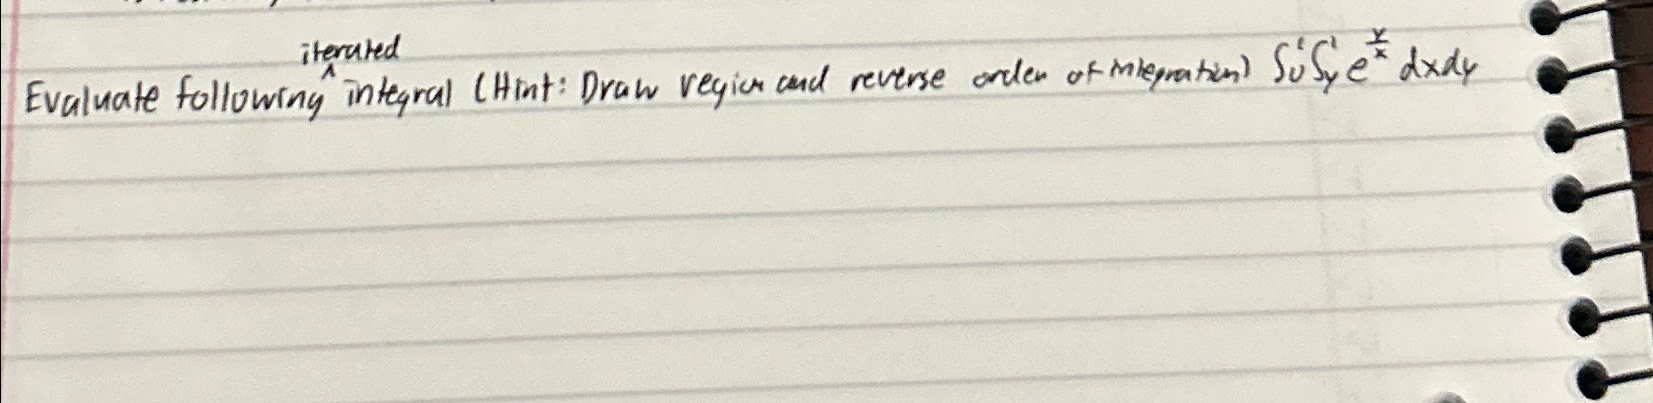 iterated
Evaluate following ^ integral (Hint: Draw region and reverse order of integration) ∫₀¹∫ᵧ¹ e^(y/x) dxdy